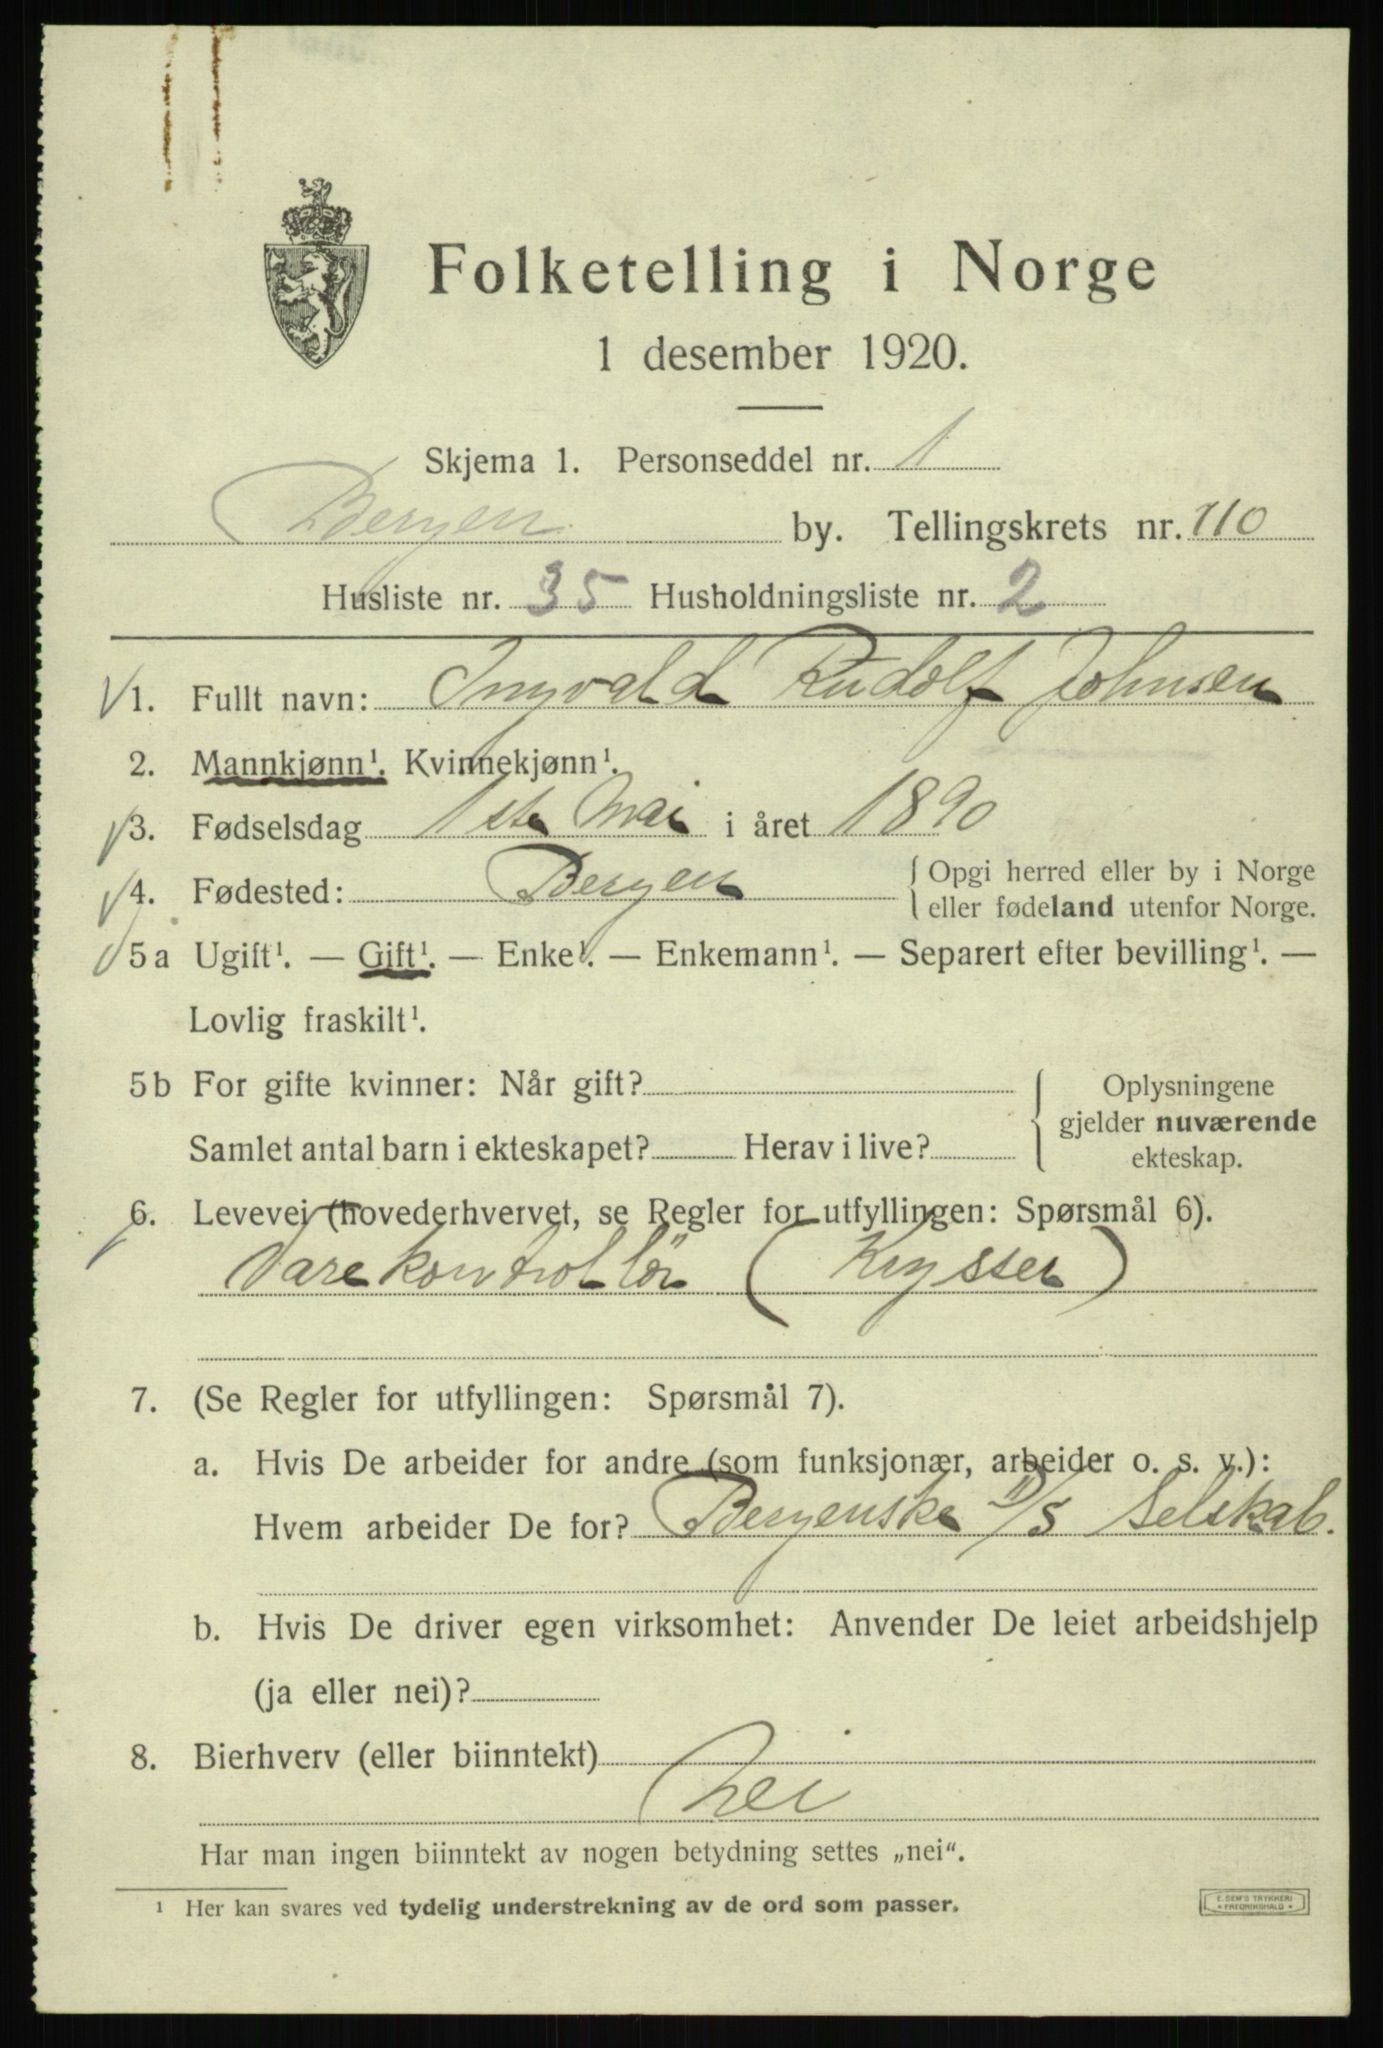 Folketelling i Norge
1 desember 1920.
Skjema 1. Personseddel nr. 1
Bergen by. Tellingskrets nr. 110
Husliste nr. 35 Husholdningsliste nr. 2
1. Fullt navn: Ingvald Rudolf Johnsen
2. Mannkjønn¹. Kvinnekjønn¹.
3. Fødselsdag 1ste Mai i året 1890
4. Fødested: Bergen { Opgi herred eller by i Norge
eller fødeland utenfor Norge.
5a Ugift¹. — Gift¹. — Enke¹. — Enkemann¹. — Separert efter bevilling¹. —
Lovlig fraskilt¹.
5b For gifte kvinner: Når gift? { Oplysningene
gjelder nuværende
Samlet antal barn i ekteskapet? Herav i live?
ekteskap.
6. Levevei (hovederhvervet, se Regler for utfyllingen: Spørsmål 6).
Varekontrollör (Krysser)
7. (Se Regler for utfyllingen: Spørsmål 7).
a. Hvis De arbeider for andre (som funksjonær, arbeider o. s. v.):
Hvem arbeider De for? Bergenske D/S Selskab.
b. Hvis De driver egen virksomhet: Anvender De leiet arbeidshjelp
(ja eller nei)?
8. Bierhverv (eller biinntekt)
Nei
Har man ingen biinntekt av nogen betydning settes „nei“.
¹ Her kan svares ved tydelig understrekning av de ord som passer.
E. SEM'S TRYKKERI
* FREDRIKSHALD *